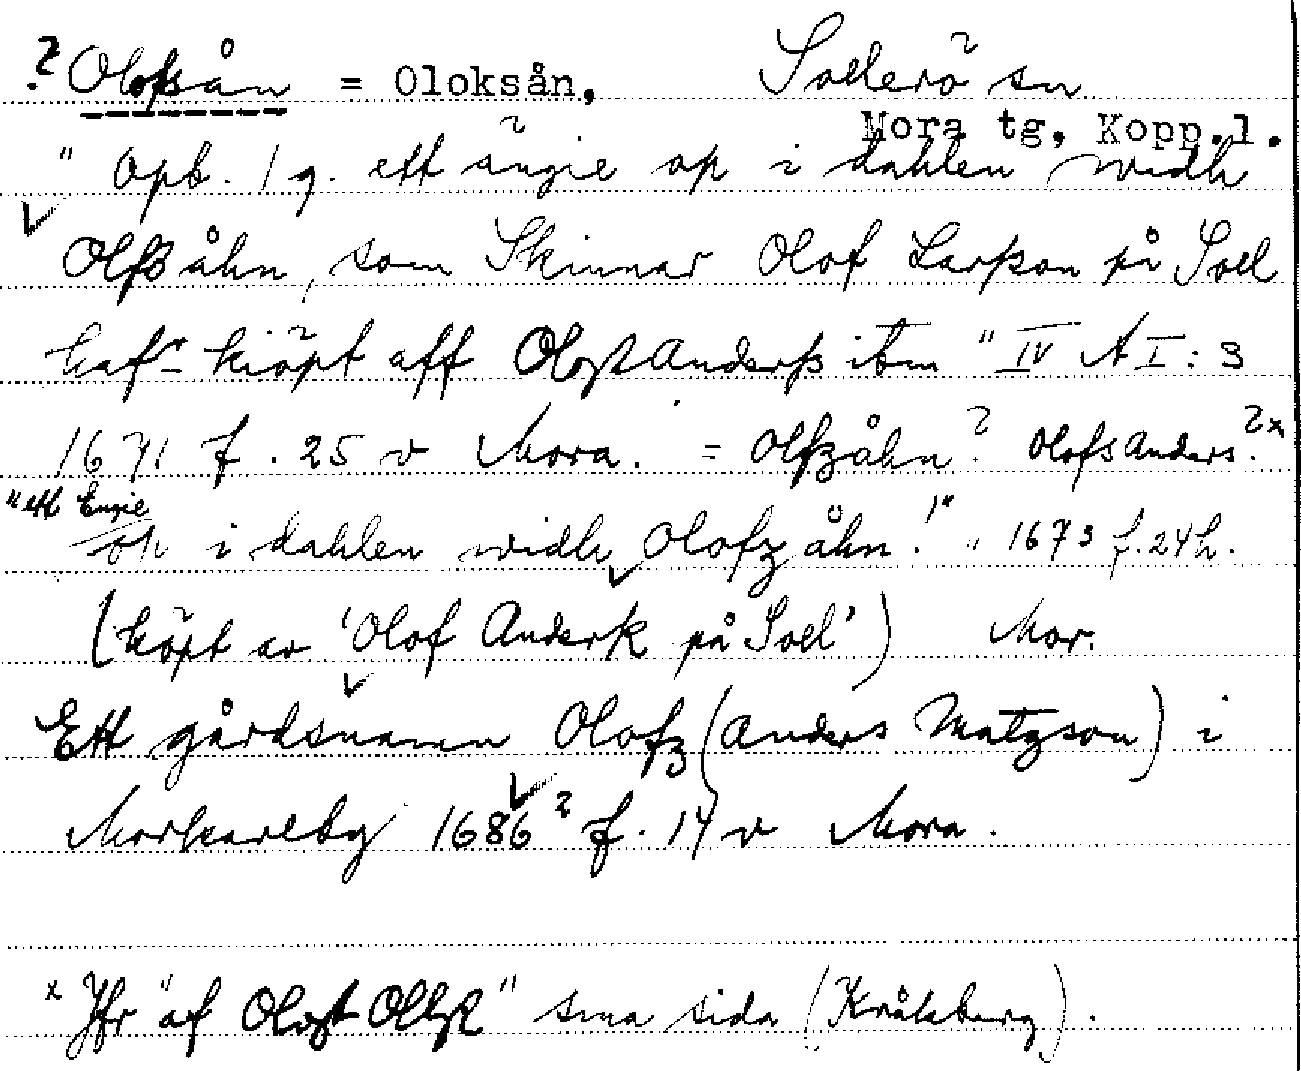 ? Olofsån = Oloksån, Sollerö sn
Mora tg, Kopp.l.
" Opb. 1 g. ett ängie op i dahlen widh
Olfß åhn, som Skinnar Olof Larßon på Soel
hafr kiöpt aff Olofz Anderß ibm " IV A I : 3
1671 f. 25 v Mora. = Olfzåhn? Olofs Anders. ? x
"ett Engie
op i dahlen widh Olofz åhn !" " 1673 f. 24 h.
(köpt av 'Olof Anderß på Soel') Mor.
Ett gårdsnamn Olofz (Anders Matzson) i
Morkarlby 1686 ? f. 14 v Mora.
x Jfr "af Olofz Olßn" sma sida (Kråkberg).